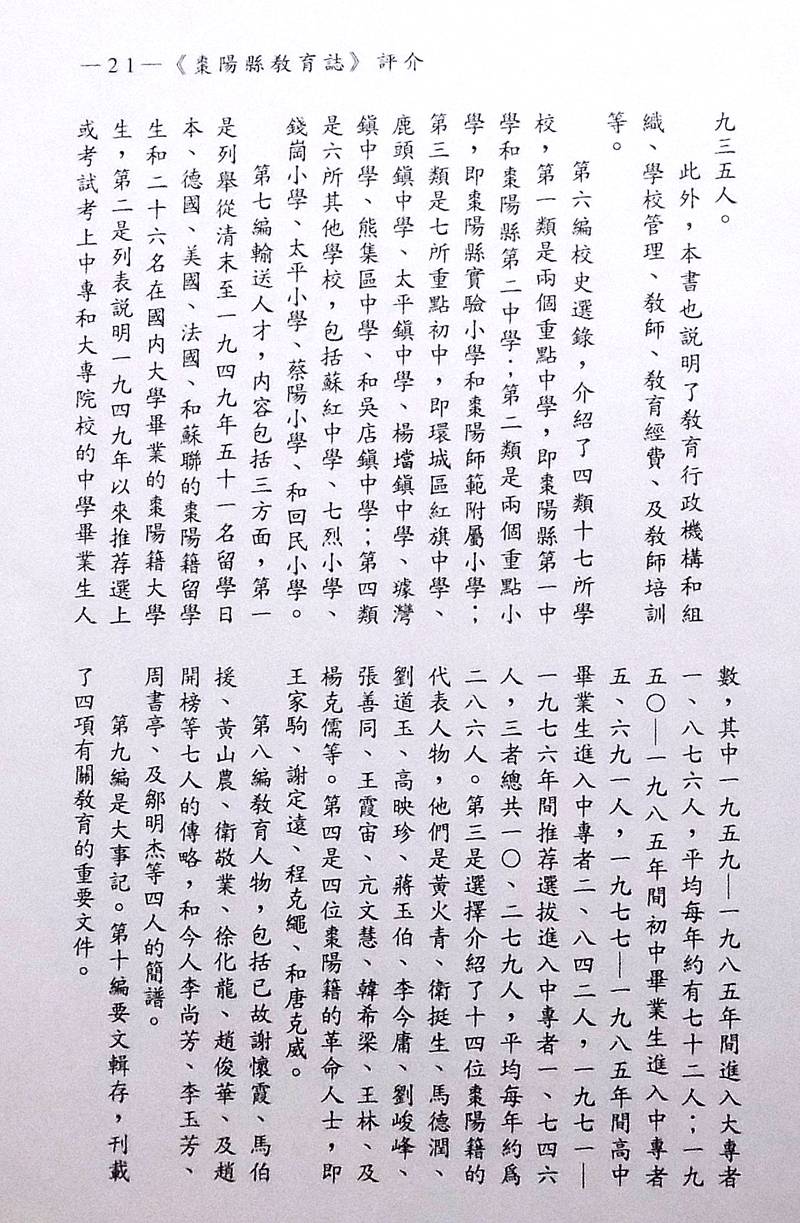 —21—《棗陽縣教育誌》評介
九三五人。
此外，本書也說明了教育行政機構和組
織、學校管理、教師、教育經費、及教師培訓
等。
第六編校史選錄，介紹了四類十七所學
校，第一類是兩個重點中學，即棗陽縣第一中
學和棗陽縣第二中學；第二類是兩個重點小
學，即棗陽縣實驗小學和棗陽師範附屬小學；
第三類是七所重點初中，即環城區紅旗中學、
鹿頭鎮中學、太平鎮中學、楊壋鎮中學、璩灣
鎮中學、熊集區中學、和吳店鎮中學；第四類
是六所其他學校，包括蘇紅中學、七烈小學、
錢崗小學、太平小學、蔡陽小學、和回民小學。
第七編輸送人才，內容包括三方面，第一
是列舉從清末至一九四九年五十一名留學日
本、德國、美國、法國、和蘇聯的棗陽籍留學
生和二十六名在國內大學畢業的棗陽籍大學
生，第二是列表說明一九四九年以來推荐選上
或考試考上中專和大專院校的中學畢業生人
數，其中一九五九—一九八五年間進入大專者
一、八七六人，平均每年約有七十二人；一九
五〇—一九八五年間初中畢業生進入中專者
五、六九一人，一九七七—一九八五年間高中
畢業生進入中專者二、八四二人，一九七一—
一九七六年間推荐選拔進入中專者一、七四六
人，三者總共一〇、二七九人，平均每年約爲
二八六人。第三是選擇介紹了十四位棗陽籍的
代表人物，他們是黃火青、衛挺生、馬德潤、
劉道玉、高映珍、蔣玉伯、李今庸、劉峻峰、
張善同、王霞宙、亢文慧、韓希梁、王林、及
楊克儒等。第四是四位棗陽籍的革命人士，即
王家駒、謝定遠、程克繩、和唐克威。
第八編教育人物，包括已故謝懷霞、馬伯
援、黃山農、衛敬業、徐化龍、趙俊華、及趙
開榜等七人的傳略，和今人李尚芳、李玉芳、
周書亭、及鄒明杰等四人的簡譜。
第九編是大事記。第十編要文輯存，刊載
了四項有關教育的重要文件。